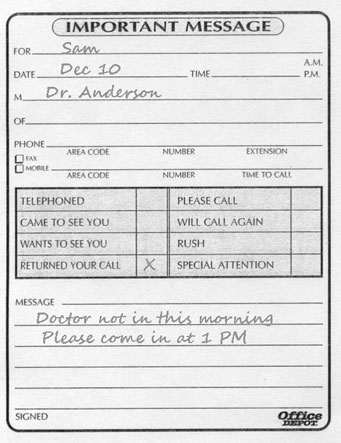 IMPORTANT MESSAGE
FOR Sam
A.M.
DATE Dec 10 TIME P.M.
M Dr. Anderson
OF
PHONE
AREA CODE NUMBER EXTENSION
FAX
MOBILE
AREA CODE NUMBER TIME TO CALL
TELEPHONED PLEASE CALL
CAME TO SEE YOU WILL CALL AGAIN
WANTS TO SEE YOU RUSH
RETURNED YOUR CALL X SPECIAL ATTENTION
MESSAGE
Doctor not in this morning
Please come in at 1 PM
SIGNED
Office
DEPOT.